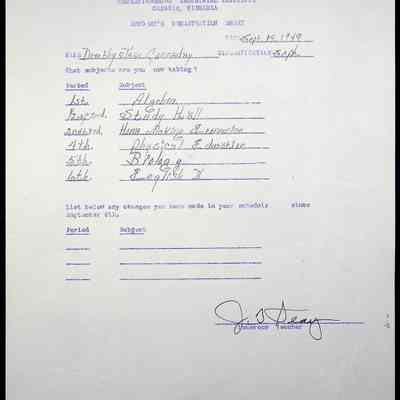 INDUSTRIAL INSTITUTE
STUDENT'S REGISTRATION SHEET
DATE Sept. 15, 1949
NAME Dorothy CLASSIFICATION Soph.
What subjects are you now taking?
Period Subject
1st. Algebra
Study Hall
Home Making
4th. Physical Education
5th. Biology
6th. English II
List below any changes you have made in your schedule since
September 6th.
Period Subject
Homeroom Teacher